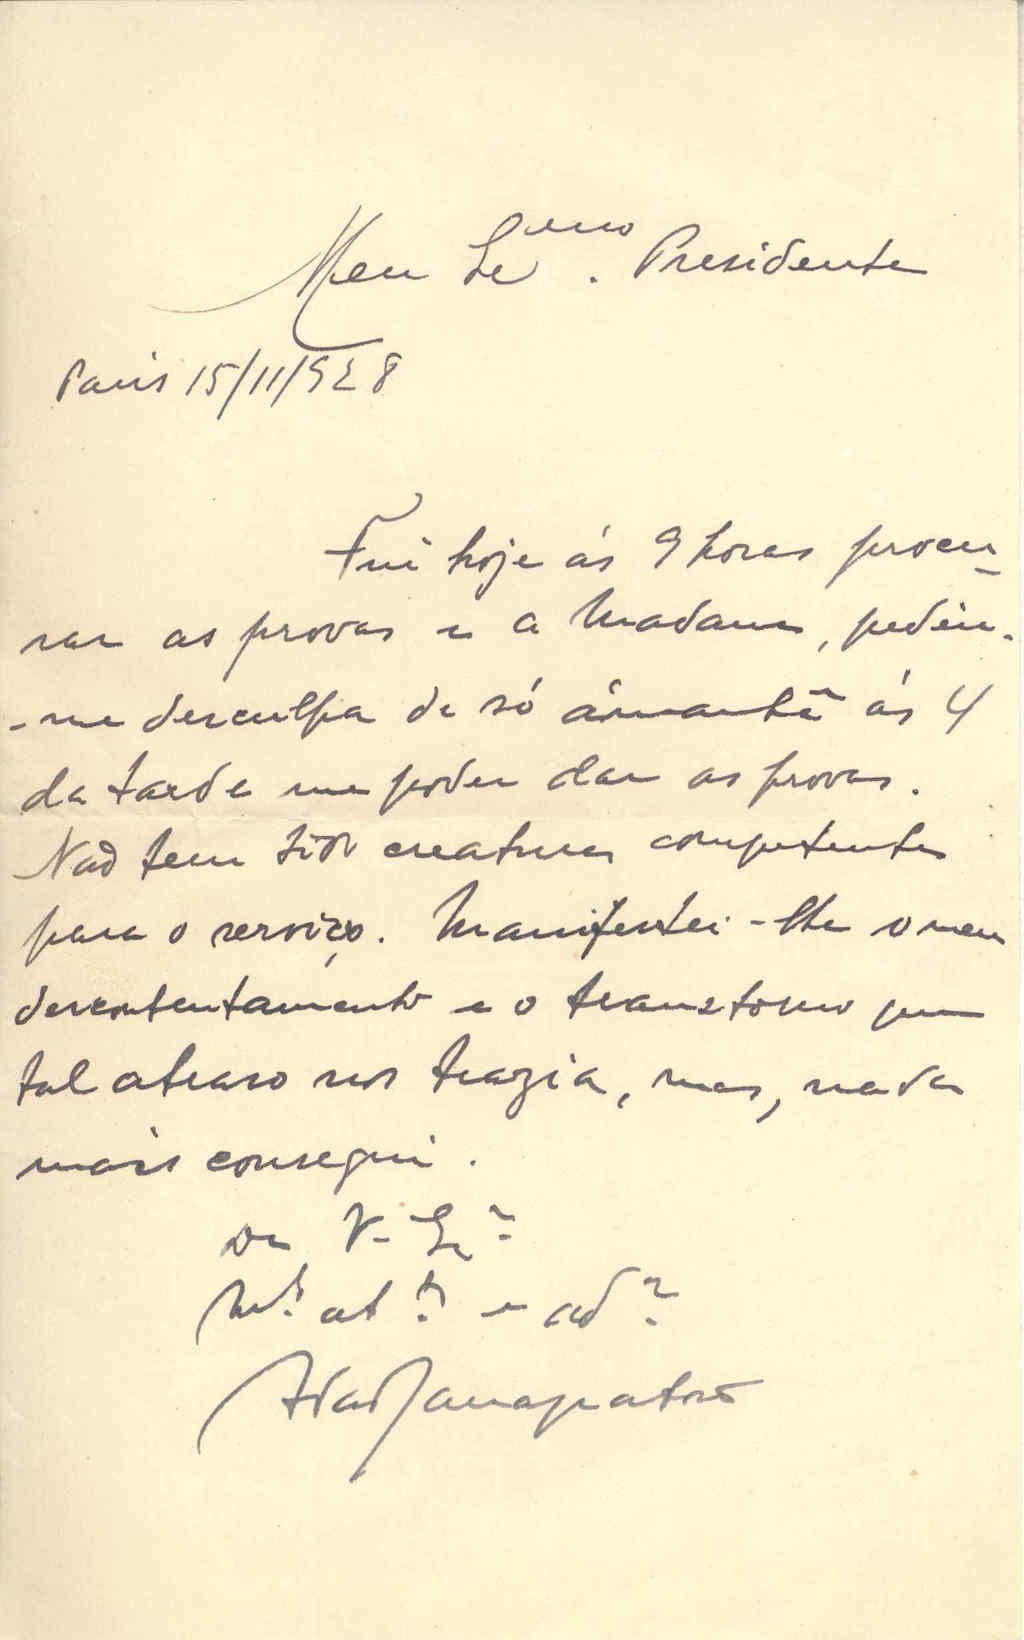 Meu Exmo. Presidente
Paris 15/11/928
Fui hoje ás 9 horas procu-
rar as provas e a Madame, pediu-
-me desculpa de só ámanhã ás 4
da tarde me poder dar as provas.
Não tem tido creaturas competentes
para o serviço. Manifestei-lhe o meu
descontentamento e o transtorno que
tal atraso nos trazia, mas, nada
mais consegui.
De V. Exª
Mto. at. e